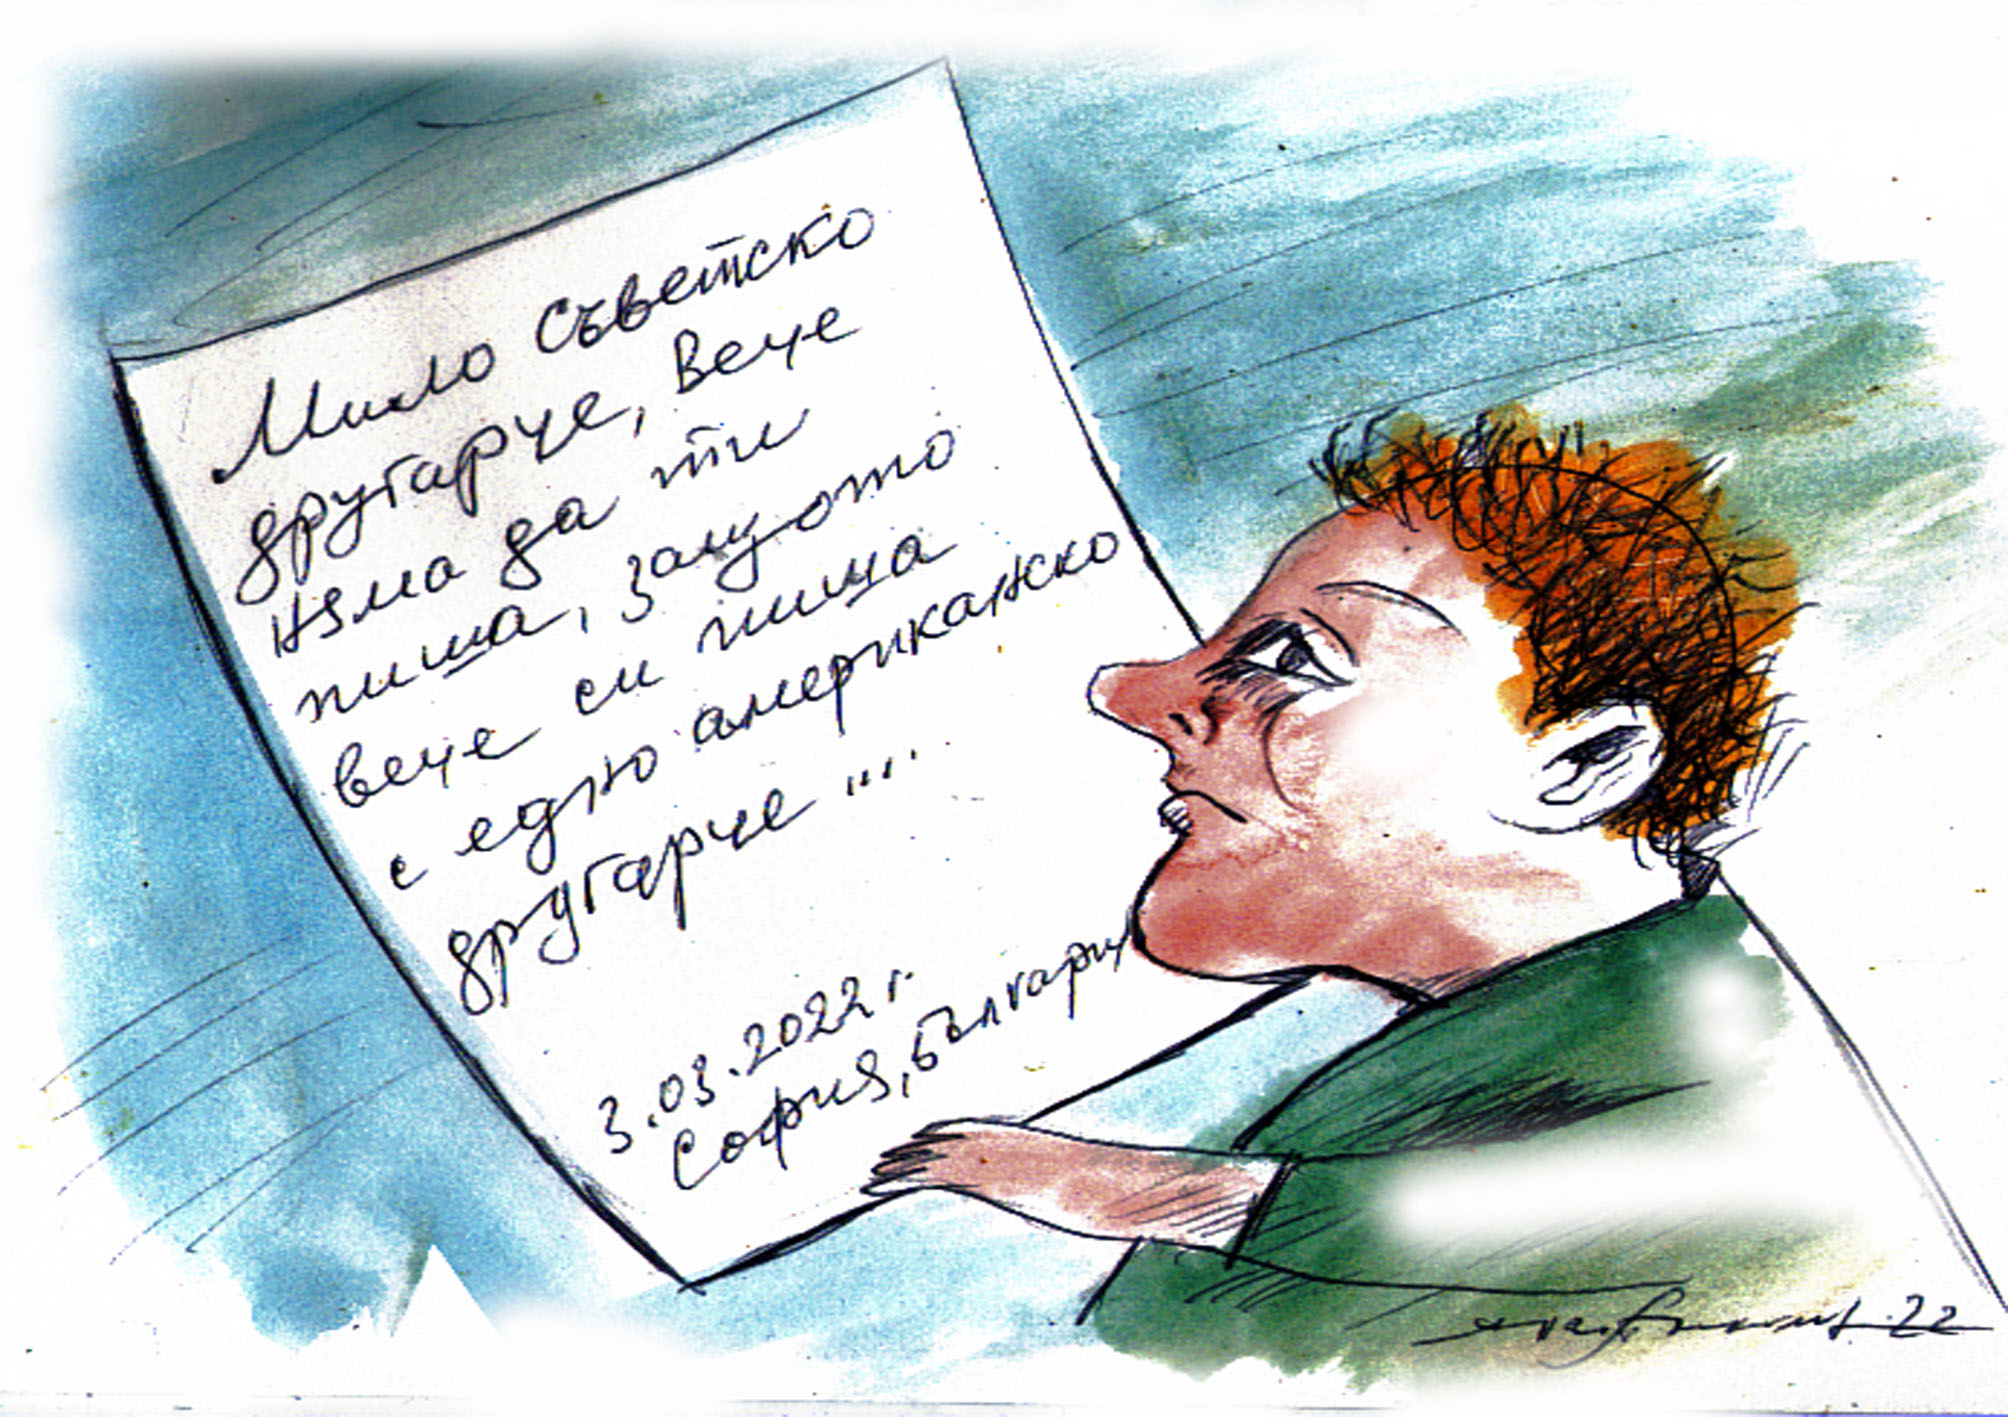 Мило съветско
другарче, вече
няма да ти
пиша, защото
вече си пиша
с едно американско
другарче ....
3.03.2022 г.
София, Българи
22